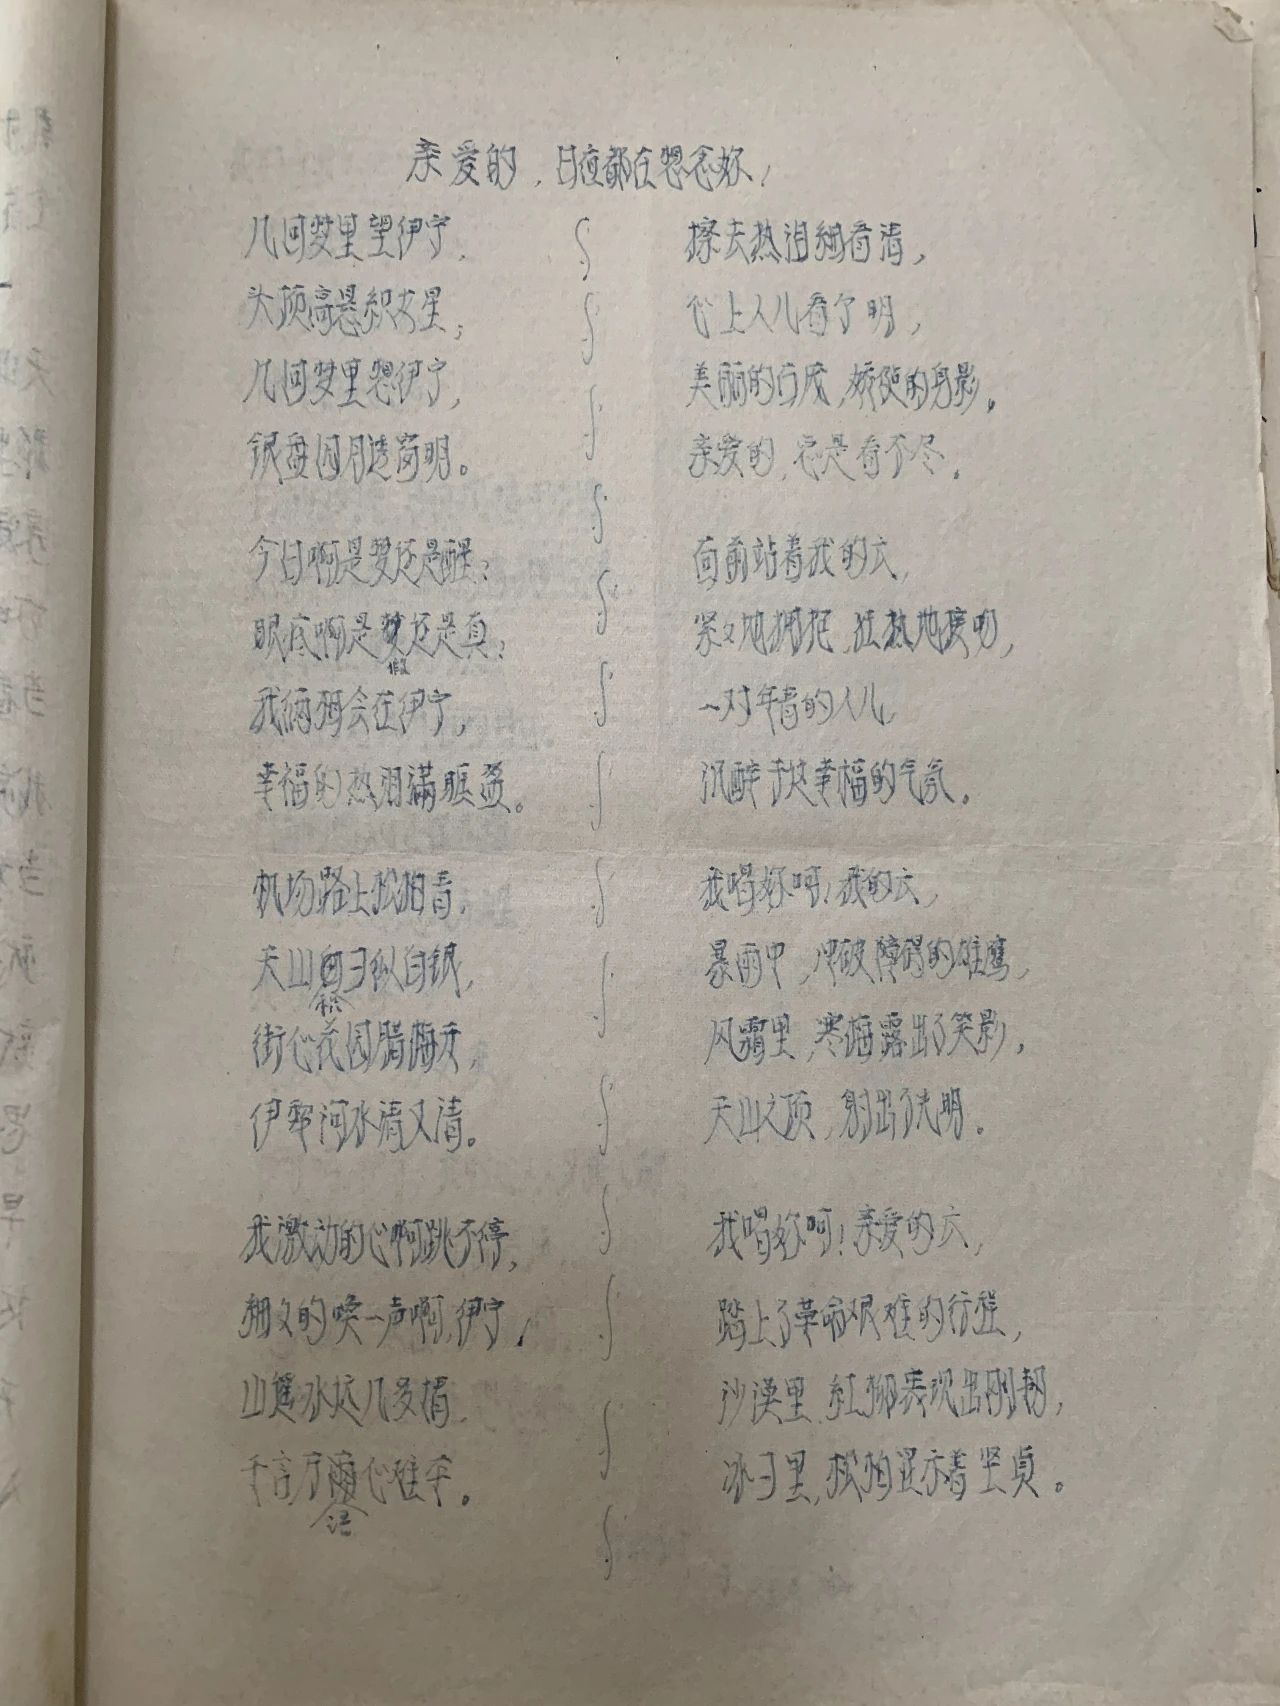 亲爱的，日夜都在想念妳！
几回梦里望伊宁，
头顶高悬织女星；
几回梦里想伊宁，
银盘园月透窗明。
今日啊是梦还是醒？
眼底啊是梦还是真？
假
我俩相会在伊宁，
幸福的热泪满眶盈。
机场路上松柏青，
天山白习似白银，
松
街心花园腊梅开，
伊犁河水清又清。
我激动的心啊跳不停，
细文的唤一声啊，伊宁！
山遥水远几多情，
千言万雨心难平。
语
擦去热泪细看清，
心上人儿看了明，
美丽的面庞，矫健的身影。
亲爱的，总是看不尽。
面前站着我的六，
紧文地拥抱，狂热地接吻，
一对年青的人儿，
沉醉于这幸福的气氛。
我喝妳呵！我的六，
暴雨中，冲破障碍的雄鹰，
风霜里，寒梅露出了笑影，
天山之顶，射出了光明。
我喝妳呵！亲爱的六，
踏上了革命艰难的行程，
沙漠里，红柳表现出刚韧，
冰习里，松柏显示着坚贞。